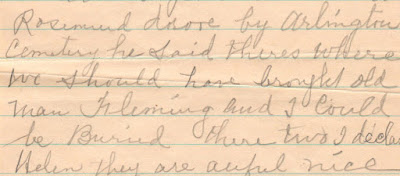 Rosemund drove by Arlington
Cemetery he said theres where
we should have brought old
man Fleming and I could
be Buried there two I declar
Helen they are awful nice